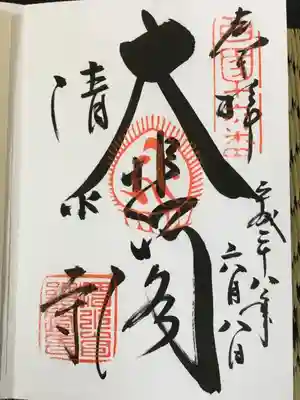 奉拝
平成二十八年
六月八日
大悲閣
清水寺